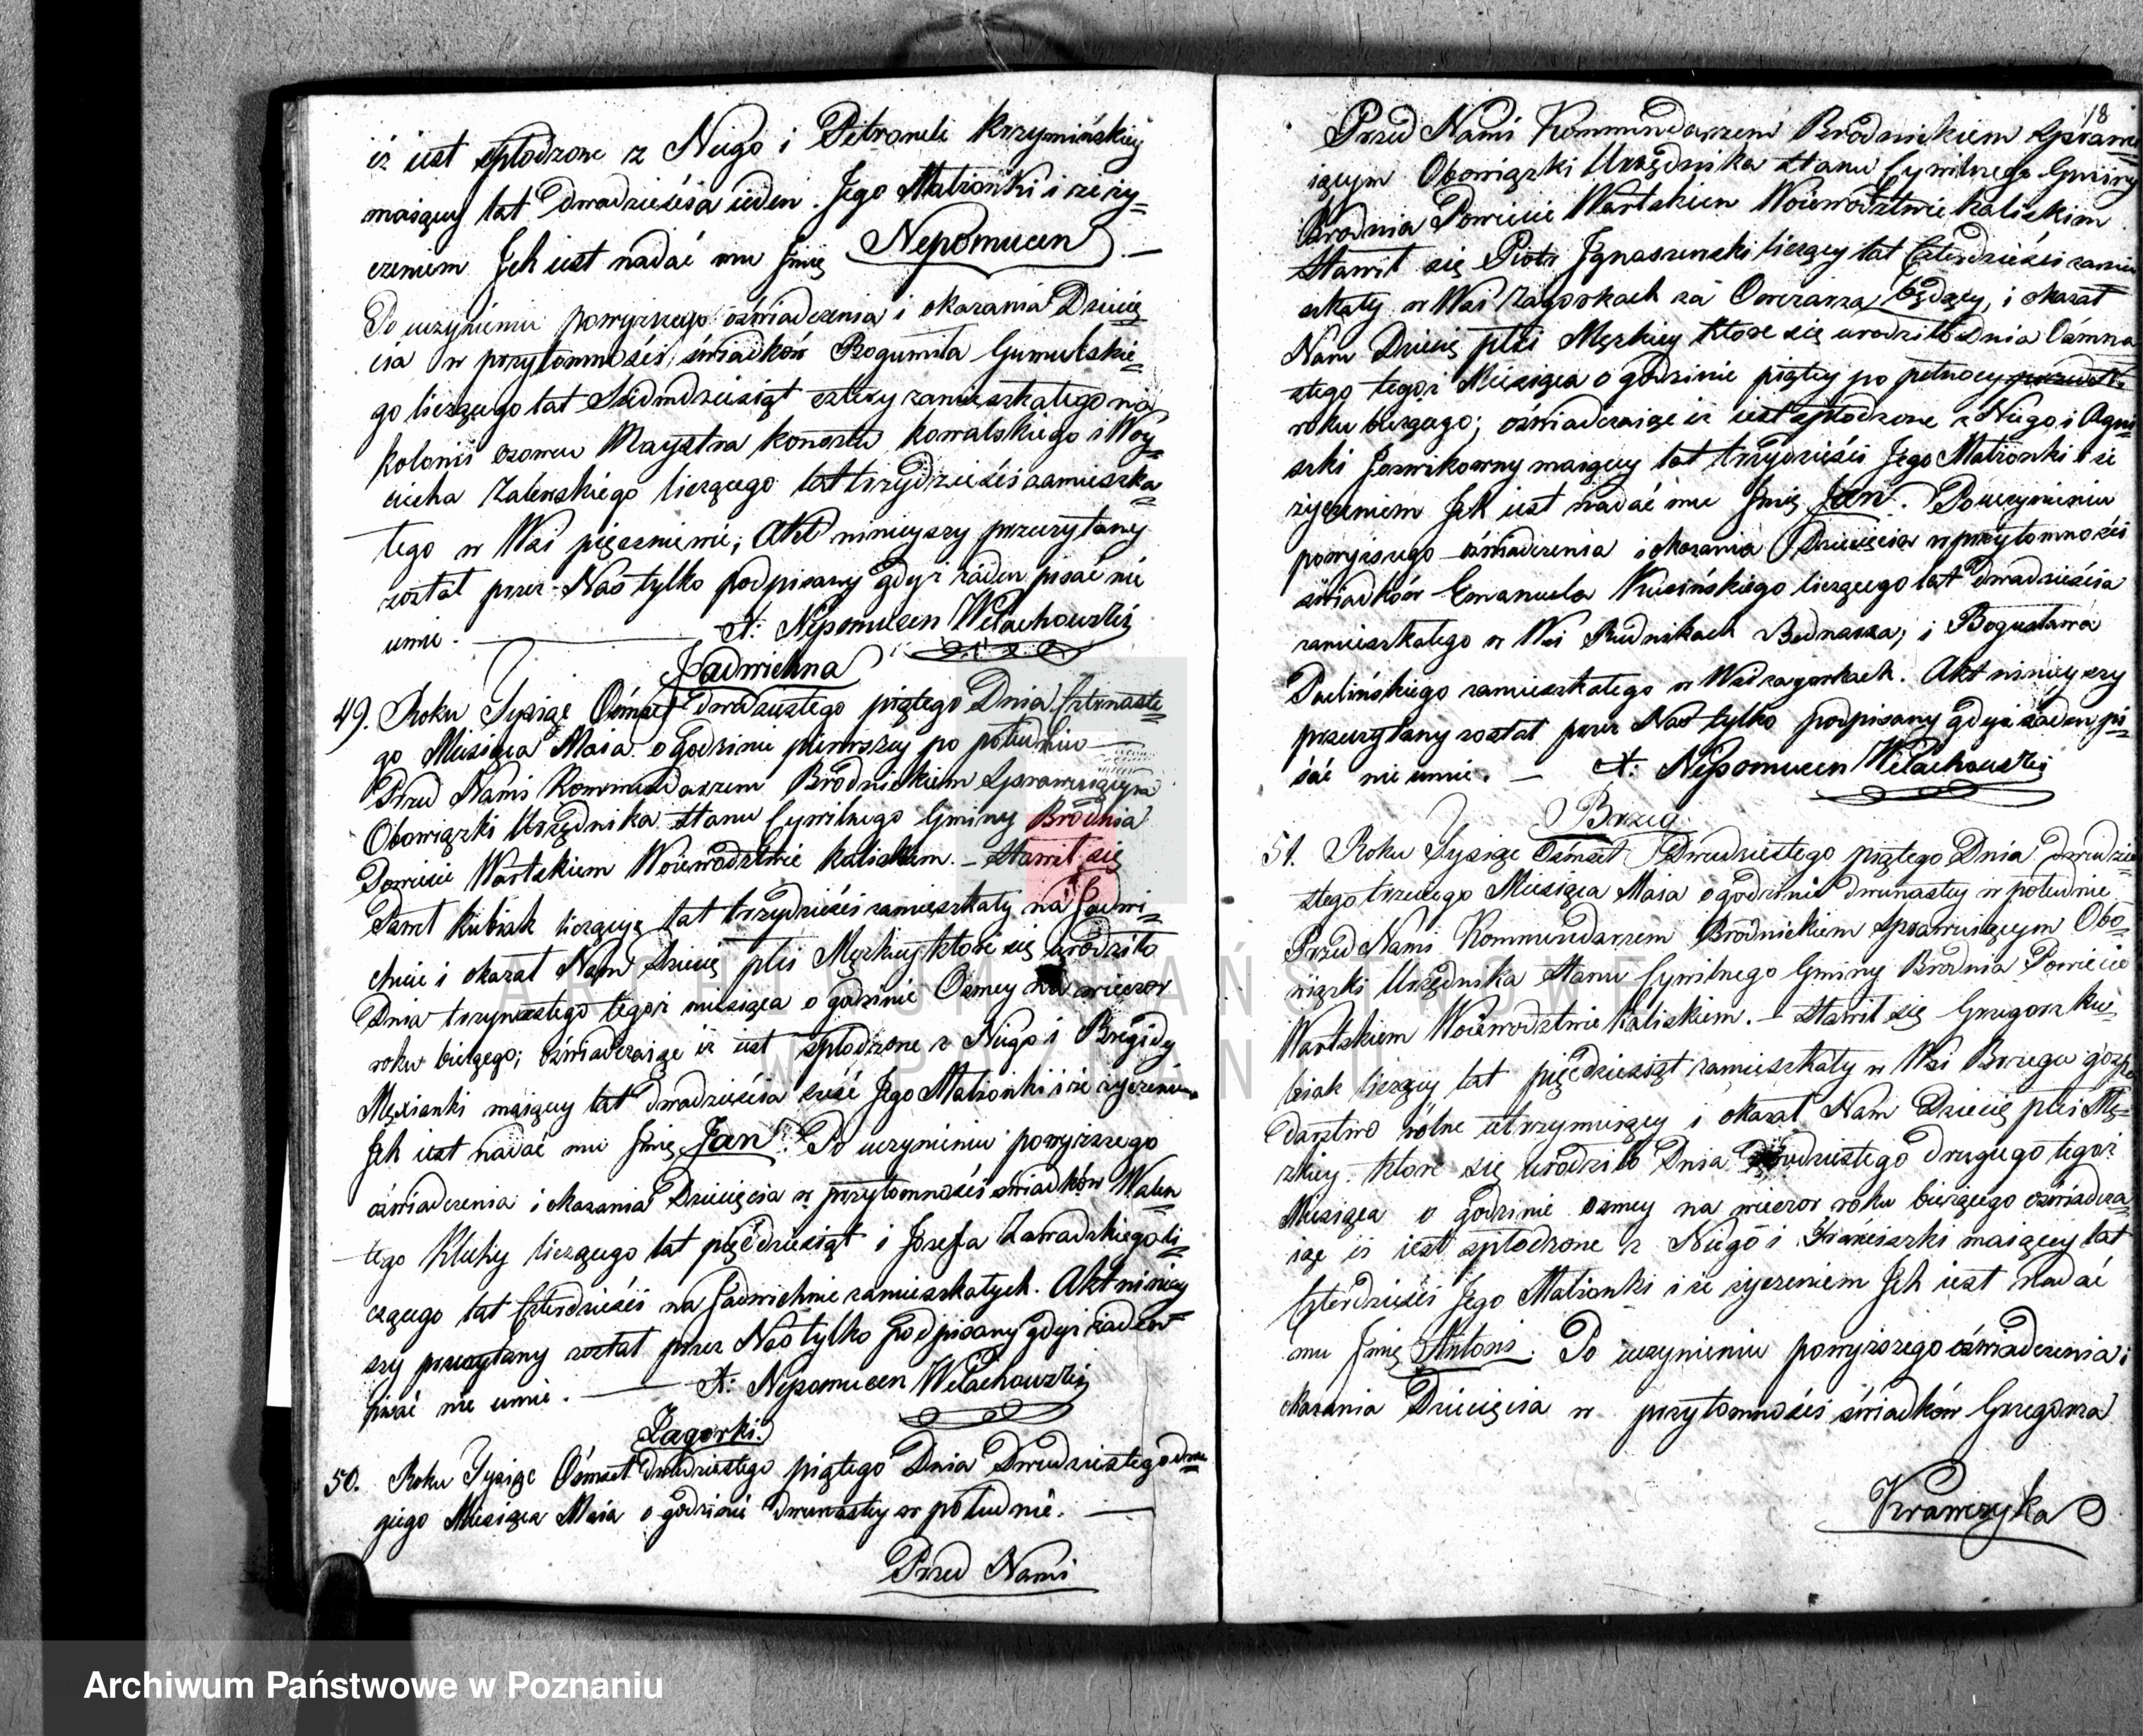 iż iest spłodzone z Niego i Petroneli Krzymińskiey
maiącey lat dwadzieścia ieden. Jego Małżonki i że ży=
czeniem Jch iest nadać mu Jmię Nepomucen. —
Po uczynieniu powyższego oświadczenia i okazania Dzieię
cia w przytomności świadków Bogumiła Gumulskie=
go liczącego lat Siedmdziesiąt cztery zamieszkałego na
kolonii Maystra kowalskiego i Woy=
ciecha Zalewskiego liczącego lat trzydzieści zamieszka=
łego w Wsi pięczniewie; Akt ninieyszy przeczytany
został przez Nas tylko podpisany gdyż żaden pisać nie
umie. — X: Nepomucen Wełachowski
Jadwichna
49. Roku Tysiąc Ośmset dwudziestego piątego Dnia Czternaste=
go Miesiąca Maia o godzinie pierwszey po południu —
Przed Nami Kommendarzem Brodnickiem Sprawuiącym
Obowiązki Urzędnika Stanu Cywilnego Gminy Brodnia
Powiecie Wartskiem Woiewodztwie Kaliskiem. — Stawił się
Paweł Kubiak liczący lat trzydzieści zamieszkały na Jadwi=
chnie i okazał Nam Dziecię płci Męzkiey które się urodziło
Dnia trzynastego tegoż miesiąca o godzinie Osmey na wieczor
roku bieżącego; oświadczaiąc iż iest spłodzone z Niego i Brygidy
maiącey lat dwadzieścia sześć Jego Małżonki i że życzeniem
Jch iest nadać mu Jmię Jan. Po uczynieniu powyższego
oświadczenia i okazania Dziecięcia w przytomności świadków Walen
tego Kluhy liczącego lat pięćdziesiąt i Jozefa Zawadzkiego li=
czącego lat Czterdzieści na Jadwichnie zamieszkałych. Akt niniey
szy przeczytany został przez Nas tylko podpisany gdyż żaden
pisać nie umie. — X: Nepomucen Wełachowski
Zagorki.
50. Roku Tysiąc Ośmset dwudziestego piątego Dnia Dwudziestego dru=
giego Miesiąca Maia o godzinie dwunastey w południe. —
Przed Nami
18
Przed Nami Kommendarzem Brodnickiem Sprawu=
iącym Obowiązki Urzędnika Stanu Cywilnego Gminy
Brodnia Powiecie Wartskiem Woiewodztwie Kaliskim
Stawił się Piotr Jgnaszewski liczący lat Czterdzieści zamie
szkały w Wsi Zagorkach za Owczarza będący, i okazał
Nam Dziecię płci Męzkiey które się urodziło Dnia Ośmna
stego tegoż Miesiąca o godzinie piątey po pełnocy
roku bieżącego; oświadczaiąc iż iest spłodzone z Niego i Agni
szki Jozwikowny maiącey lat trzydzieści Jego Małżonki i że
życzeniem Jch iest nadać mu Jmię Jan. Po uczynieniu
powyższego oświadczenia i okazania Dziecięcia w przytomności
świadków Emanuela liczącego lat dwadzieścia
zamieszkałego w Wsi Rudnikach Bednarza, i Bogusława
Paelińskiego zamieszkałego w Wsi zagorkach. Akt ninieyszy
przeczytany został przez Nas tylko podpisany gdyż żaden pi=
sać nie umie. — X: Nepomucen Wełachowski
Brzeg.
51. Roku Tysiąc Ośmset Dwudziestego piątego Dnia dwudzie
stego trzeciego Miesiąca Maia o godzinie dwunastey w południe
Przed Nami Kommendarzem Brodnickiem Sprawuiącym Obo=
wiązki Urzędnika Stanu Cywilnego Gminy Brodnia Powiecie
Wartskiem Woiewodztwie Kaliskiem. — Stawił się Grzegorz Ku=
biak liczący lat pięćdziesiąt zamieszkały w Wsi Brzegu gosp
darstwo rolne utrzymuiący i okazał Nam Dziecię płci Mę=
zkiey. które się urodziło Dnia Dwudziestego drugiego tegoż
Miesiąca o godzinie osmey na wieczor roku bieżącego oświadcza
iąc iż iest spłodzone z Niego i Franciszki maiącey lat
Czterdzieści Jego Małżonki i że życzeniem Jch iest nadać
mu Jmię Antoni. Po uczynieniu powyższego oświadczenia i
okazania Dziecięcia w przytomności świadków Grzegorza
Krawczyka
ARCHIWUM PAŃSTWOWE
W POZNANIU
Archiwum Państwowe w Poznaniu